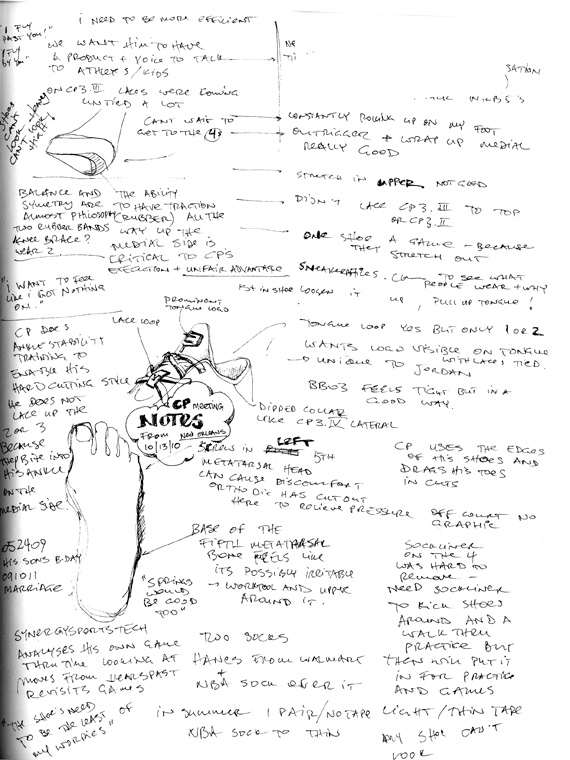 "I FLY PAST YOU!"
"I FLY BY YOU"
I NEED TO BE MORE EFFICIENT
WE WANT HIM TO HAVE
A PRODUCT + VOICE TO TALK
TO ATHLETES/KIDS
ON CP3.III LACES WERE COMING
UNTIED A LOT
SHOES CAN'T LOOK
CAN'T LOOK
CAN'T WAIT TO
GET TO THE 4s
NE
TI
SATION
CONSTANTLY ROLLING UP ON MY FOOT
OUTRIGGER + WRAP UP MEDIAL
REALLY GOOD
STRETCH IN UPPER NOT GOOD
DIDN'T LACE CP3.III TO TOP
OR CP3.II
ONE SHOE A GAME - BECAUSE
THEY STRETCH OUT
BALANCE AND
SYMETRY ARE
ALMOST PHILOSOPHY
TWO RUBBER BANDS
KNEE BRACE?
YEAR 2
THE ABILITY
TO HAVE TRACTION
(RUBBER) ALL THE
WAY UP THE
MEDIAL SIDE IS
CRITICAL TO CP'S
EXECUTION + UNFAIR ADVANTAGE
SNEAKERFILES.COM TO SEE WHAT
PEOPLE WEAR + WHY
1ST IN SHOE LOOSEN IT UP, PULL UP TONGUE!
"I WANT TO FEEL
LIKE I GOT NOTHING
ON."
PROMINENT
TONGUE LOGO
LACE LOOP
TONGUE LOOP YES BUT ONLY 1 OR 2
WANTS LOGO VISIBLE ON TONGUE
WITH LACES TIED.
UNIQUE TO JORDAN
BB03 FEELS TIGHT BUT IN A
GOOD WAY.
DIPPED COLLAR
LIKE CP3.IV LATERAL
CP DOES
ANKLE STABILITY
TRAINING TO
ENABLE HIS
HARD CUTTING STYLE
HE DOES NOT
LACE UP THE
2 OR 3
BECAUSE
THEY BITE INTO
HIS ANKLE
ON THE
MEDIAL SIDE
CP MEETING
NOTES
FROM NEW ORLEANS
10/13/10
SCREWS IN LEFT 5TH
METATARSAL HEAD
CAN CAUSE DISCOMFORT
ORTHOTIC HAS CUT OUT
HERE TO RELIEVE PRESSURE
CP USES THE EDGES
OF HIS SHOES AND
DRAGS HIS TOES
IN CUTS
OFF COURT NO
GRAPHIC
BASE OF THE
FIFTH METATARSAL
BONE FEELS LIKE
ITS POSSIBLY IRRITABLE
→ WORKTOOL AND UPPER
AROUND IT.
"SPRINGS
WOULD
BE GOOD
TOO"
052409
HIS SONS B-DAY
091011
MARRIAGE
SOCKLINER
ON THE 4
WAS HARD TO
REMOVE -
NEED SOCKLINER
TO KICK SHOES
AROUND AND A
WALK THRU
PRACTICE BUT
THEN WILL PUT IT
IN FOR PRACTICE
AND GAMES
SYNERGYSPORTSTECH
ANALYSES HIS OWN GAME
THRU TIME LOOKING AT
MOVES FROM YEARS PAST
REVISITS GAMES
TWO SOCKS
HANES FROM WALMART
+
NBA SOCK OVER IT
"THE SHOE'S NEED
TO BE THE LEAST OF
MY WORRIES"
IN SUMMER 1 PAIR/NO TAPE
NBA SOCK TO THIN
LIGHT/THIN TAPE
ANY SHOE CAN'T
LOOK